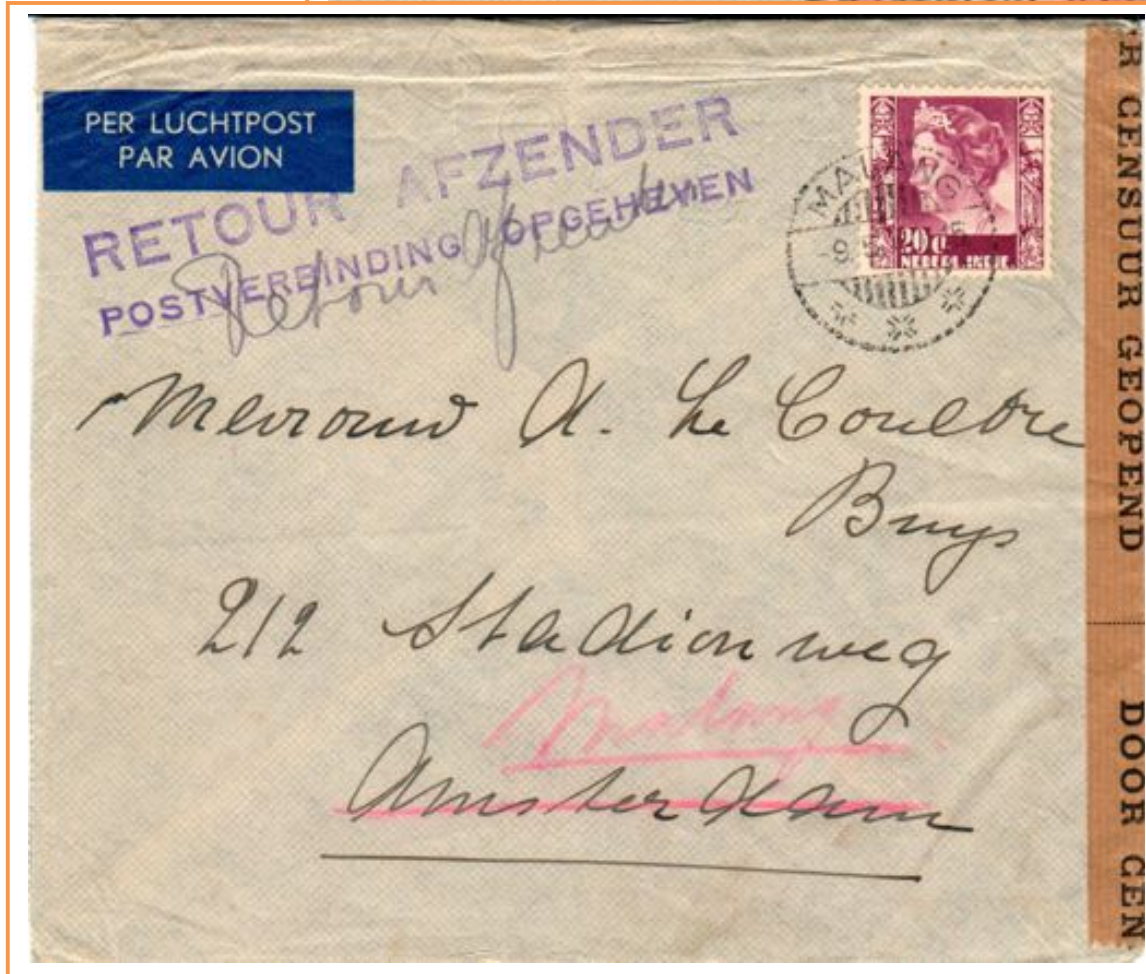 PER LUCHTPOST
PAR AVION
RETOUR AFZENDER
POSTVERBINDING OPGEHEVEN
Retour Afzender
MALANG
20 ct
NEDERL. INDIE
Mevrouw A. Le Coultre
Buys
212 Stadionweg
Malang
Amsterdam
R CENSUUR GEOPEND
DOOR CEN